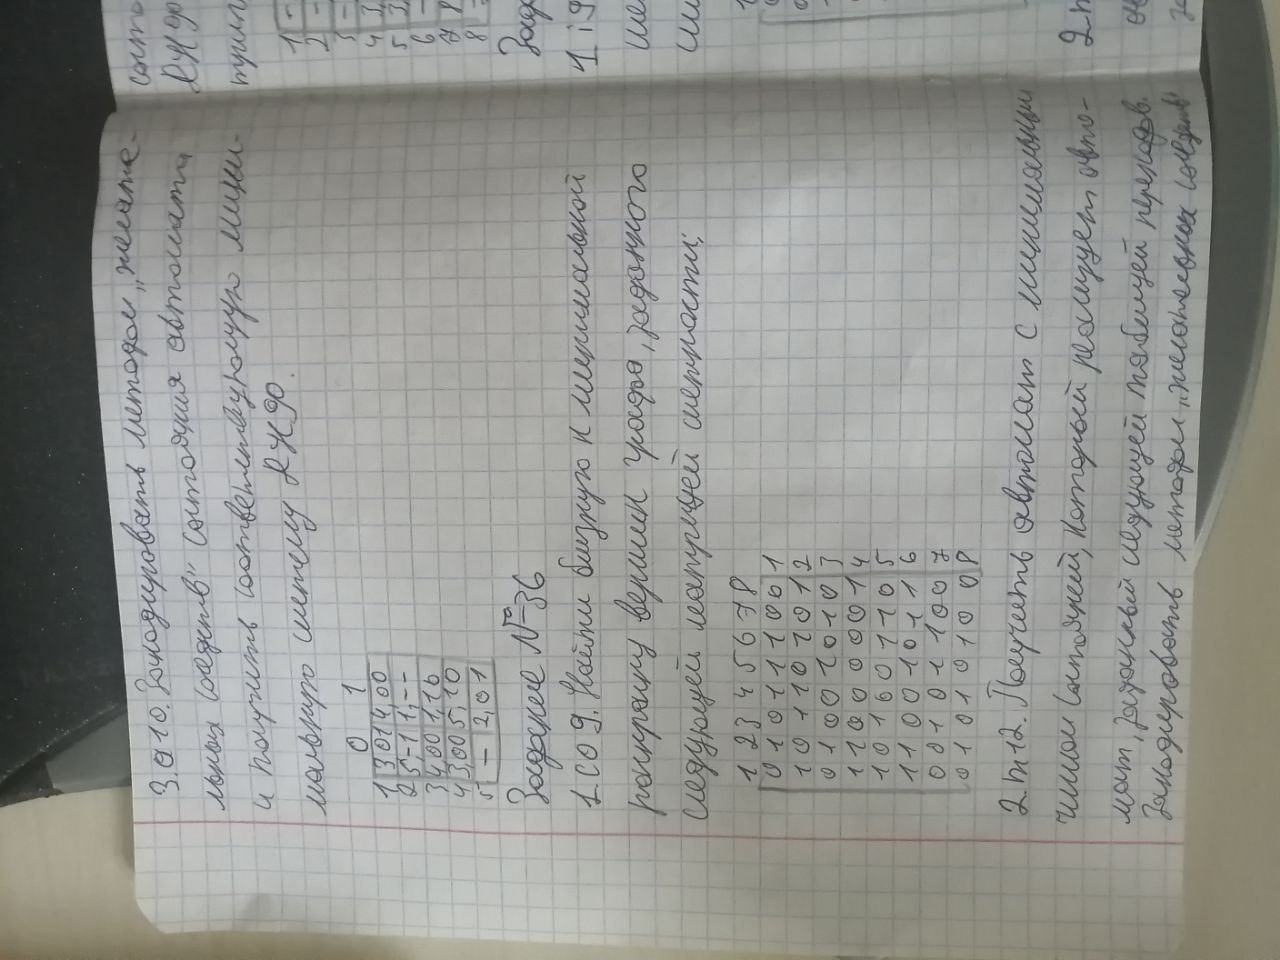 3.а10. Закодировать методом „жела те-
льных соседств" состояния автомата
и получить соответствующую мини-
мальную систему ДНФ.
0 1
1 3 01 4,00
2 5,-1 1,--
3 4,00 1,10
4 3,00 5,10
5 - 2,01
Задание №36
1.с09. Найти близкую к минимальной
раскраску вершин графа, заданного
следующей матрицей смежности:
1 2 3 4 5 6 7 8
0 1 0 1 1 1 0 0 1
1 0 1 1 0 1 0 1 2
0 1 0 0 1 0 1 0 3
1 1 0 0 0 0 0 1 4
1 0 1 0 0 1 1 0 5
1 1 0 0 1 0 1 1 6
0 0 1 0 1 1 0 0 7
0 1 0 1 0 1 0 0 8
2.т12. Получить автомат с минимальным
числом состояний, который реализует авто-
мат, заданный следующей таблицей переходов.
Закодировать методом „желательных соседств"
состо
ДНФ
1 -
2 -
3 -
4 3,
5 3,
6 -
7 8
8
Зада
1 i9